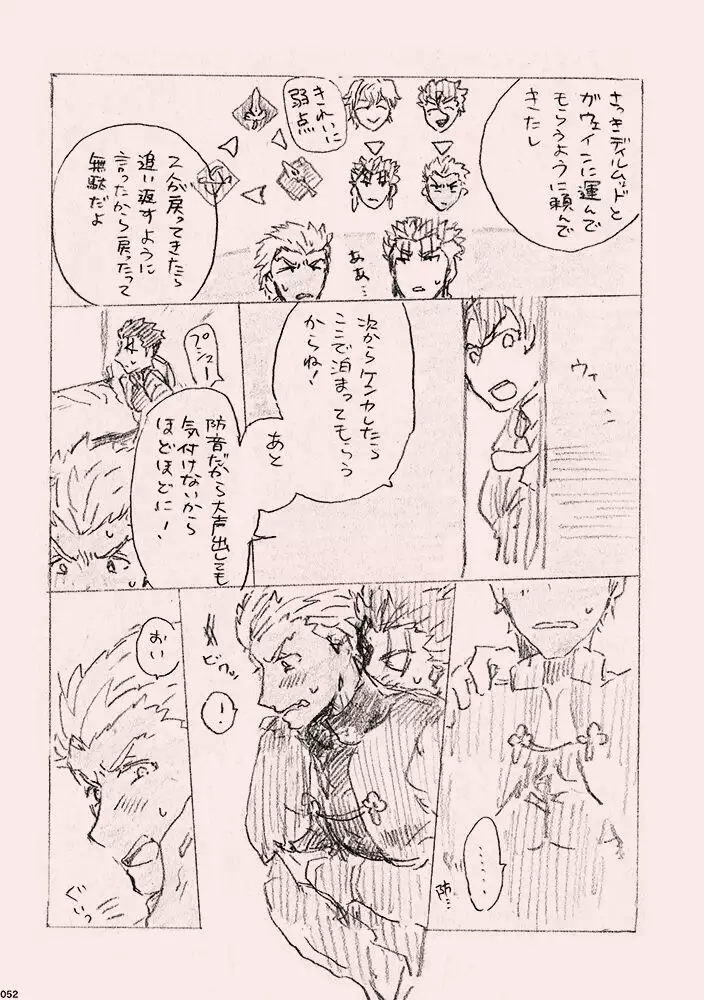 さっきディルムッドと
ガウェインに運んで
もらうように頼んで
きたし
きれいに
弱点
2人が戻ってきたら
追い返すように
言ったから戻ったって
無駄だよ
ああ…
ウィーン
次からケンカしたら
ここで泊まってもらう
からね!
あと
防音だから大声出しても
気付けないから
ほどほどに!
プシュー
………
防…
ビクッ
!
おい
ぐいっ
052